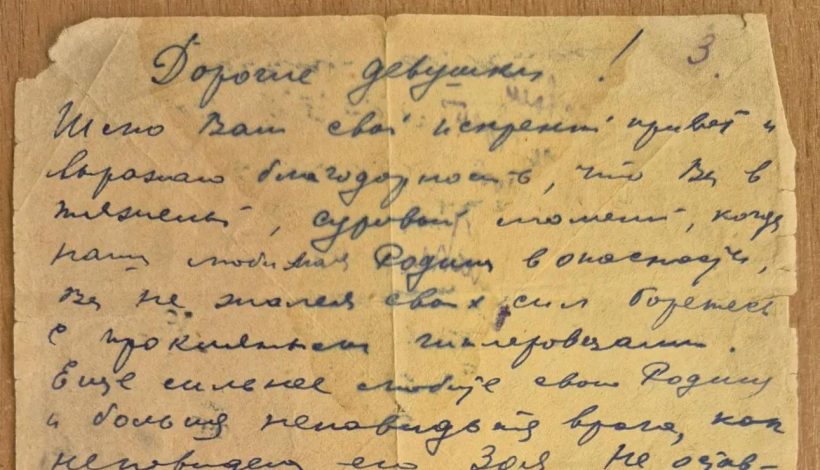 Дорогие девушки! 3.
Шлю Вам свой искренний привет и
выражаю благодарность, что Вы в
тяжелый, суровый момент, когда
наша любимая Родина в опасности,
Вы не жалея своих сил боретесь
с проклятыми гитлеровцами.
Еще сильнее любите свою Родину
и больше ненавидьте врага, как
ненавидела его Зоя. Не остав-